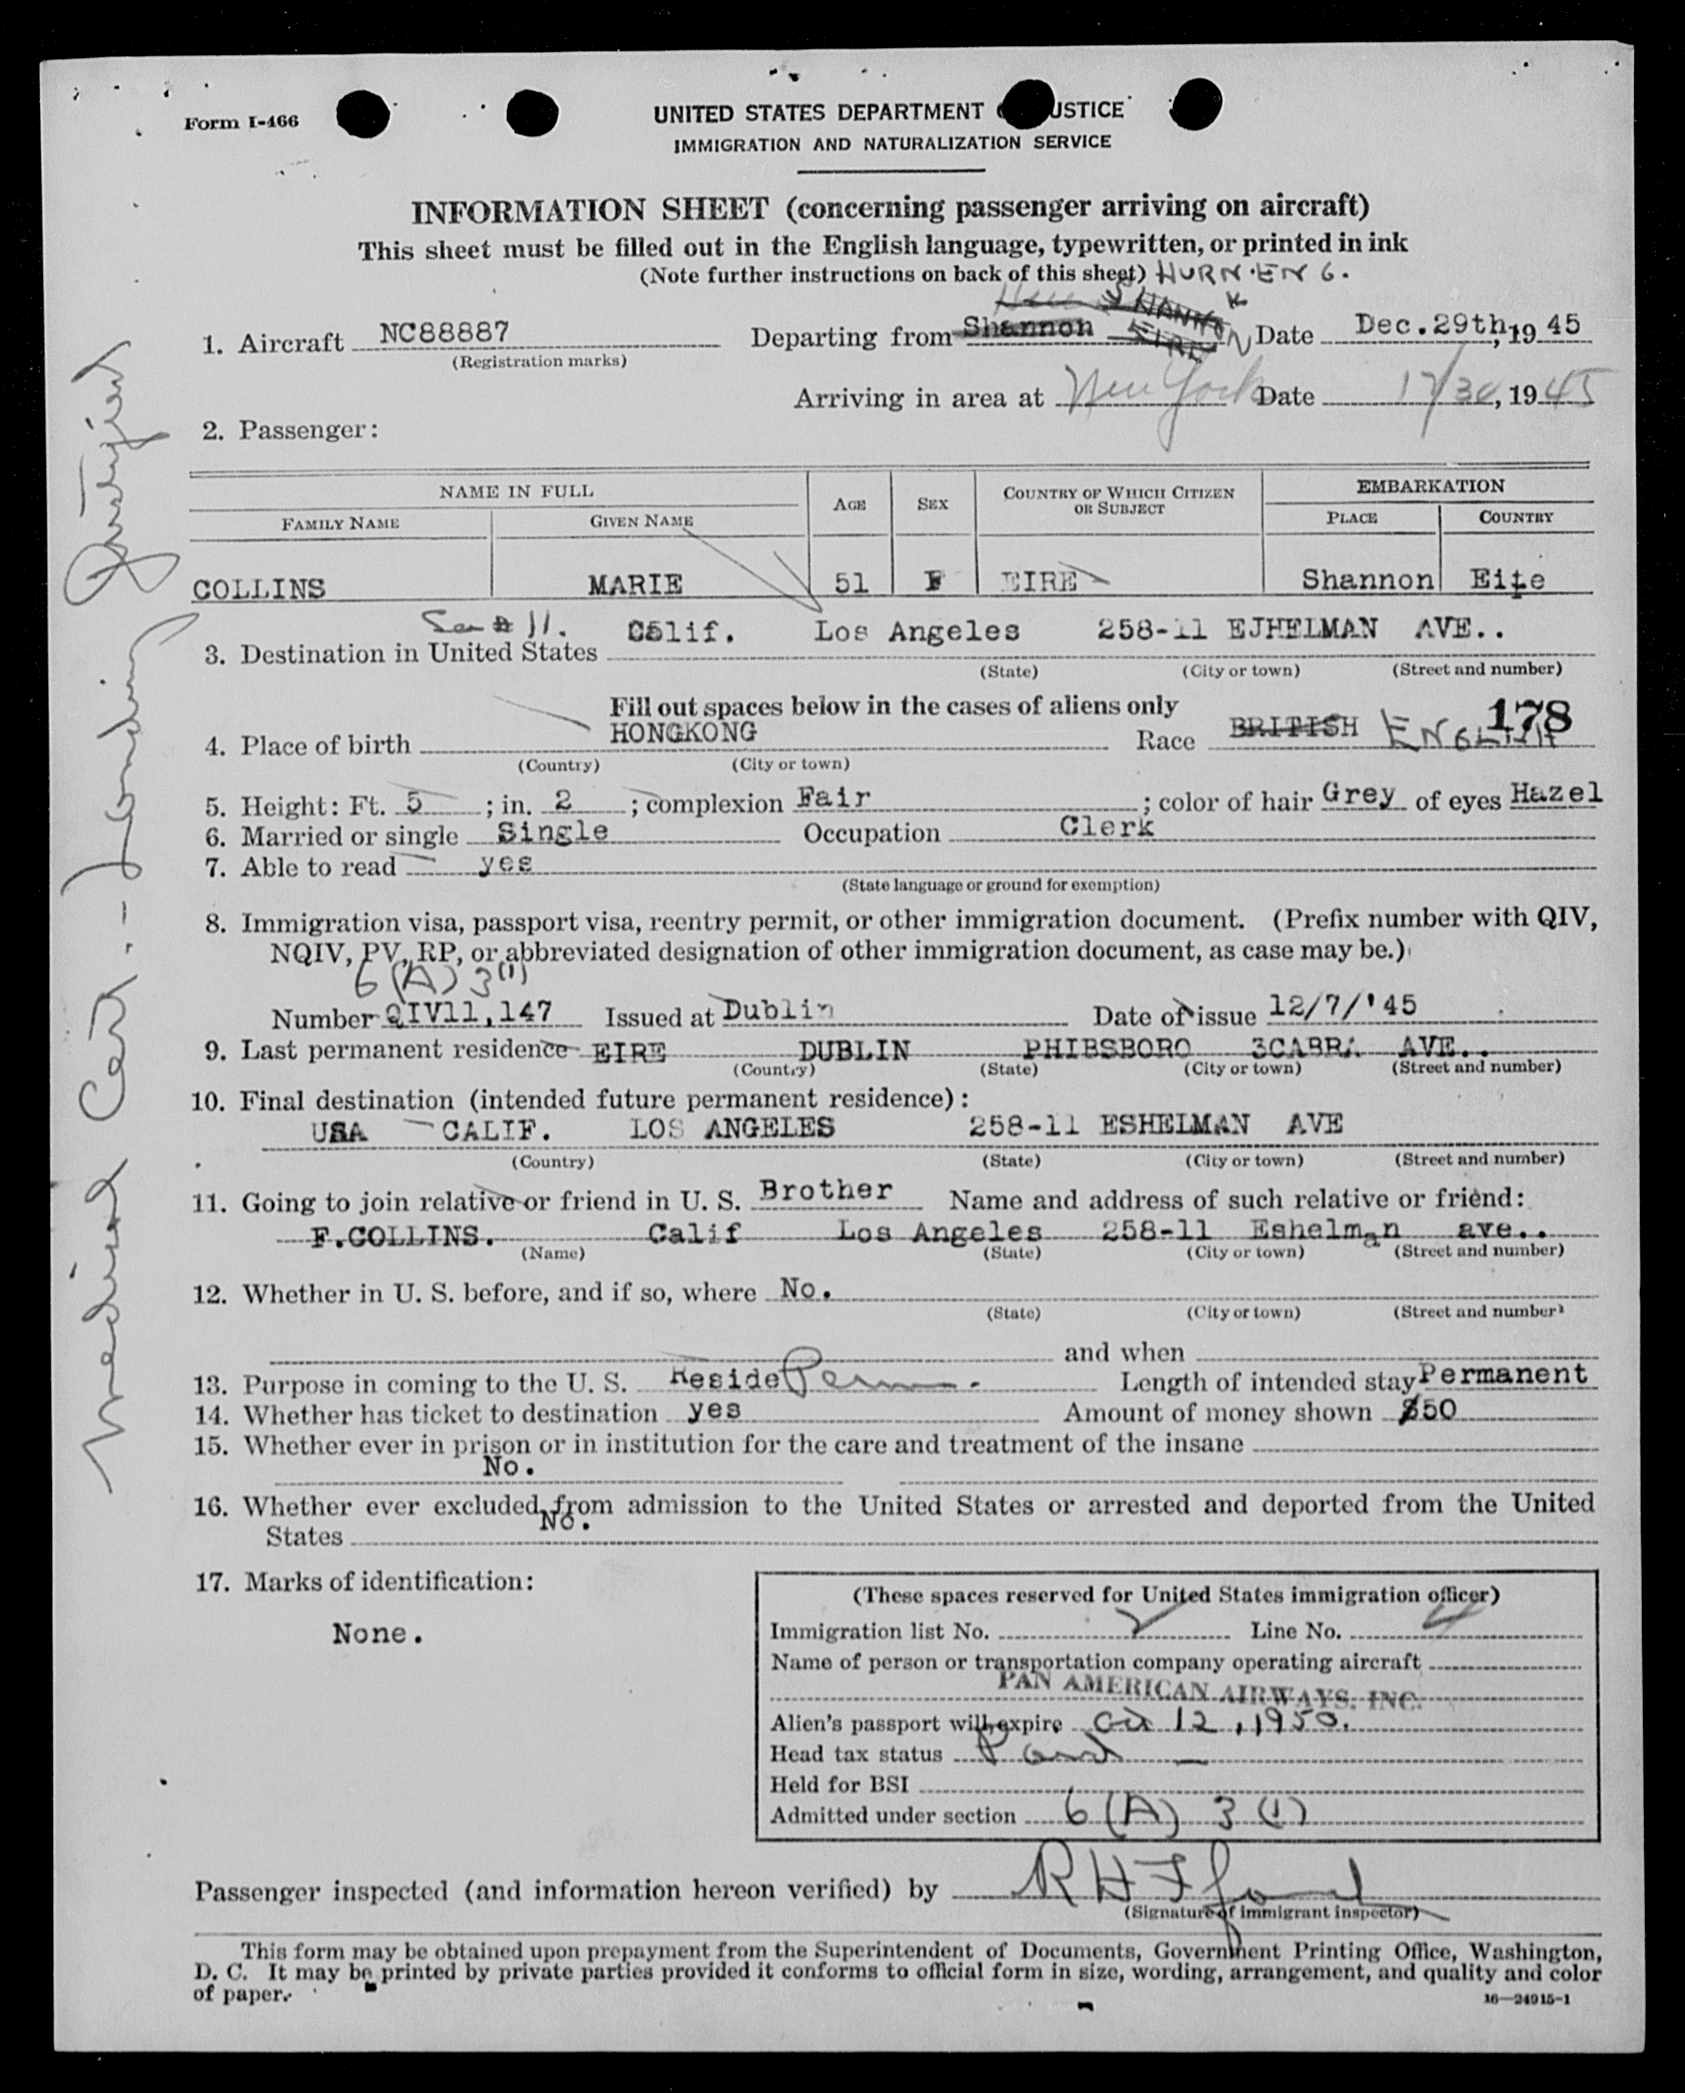 Form I-466
UNITED STATES DEPARTMENT USTICE
IMMIGRATION AND NATURALIZATION SERVICE
INFORMATION SHEET (concerning passenger arriving on aircraft)
This sheet must be filled out in the English language, typewritten, or printed in ink
(Note further instructions on back of this sheet) HURN·ENG.
1. Aircraft NC88887 Departing from Shannon EIRE Date Dec.29th, 19 45
(Registration marks)
Arriving in area at New York Date 12/30, 19 45
2. Passenger:
NAME IN FULL AGE SEX COUNTRY OF WHICH CITIZEN OR SUBJECT EMBARKATION
FAMILY NAME GIVEN NAME PLACE COUNTRY
COLLINS MARIE 51 F EIRE Shannon Eire
See # 11.
3. Destination in United States Calif. Los Angeles 258-11 EJHELMAN AVE..
(State) (City or town) (Street and number)
Fill out spaces below in the cases of aliens only
178
4. Place of birth HONGKONG Race BRITISH ENGLISH
(Country) (City or town)
5. Height: Ft. 5 ; in. 2 ; complexion Fair ; color of hair Grey of eyes Hazel
6. Married or single Single Occupation Clerk
7. Able to read yes
(State language or ground for exemption)
8. Immigration visa, passport visa, reentry permit, or other immigration document. (Prefix number with QIV,
NQIV, PV, RP, or abbreviated designation of other immigration document, as case may be.)
6 (A) 3 (1)
Number QIV11,147 Issued at Dublin Date of issue 12/7/'45
9. Last permanent residence EIRE DUBLIN PHIBSBORO 3CABRA AVE..
(Country) (State) (City or town) (Street and number)
10. Final destination (intended future permanent residence):
USA CALIF. LOS ANGELES 258-11 ESHELMAN AVE
(Country) (State) (City or town) (Street and number)
11. Going to join relative or friend in U. S. Brother Name and address of such relative or friend:
F.COLLINS. Calif Los Angeles 258-11 Eshelman ave..
(Name) (State) (City or town) (Street and number)
12. Whether in U. S. before, and if so, where No.
(State) (City or town) (Street and number)
and when
13. Purpose in coming to the U. S. Reside Perm. Length of intended stay Permanent
14. Whether has ticket to destination yes Amount of money shown $50
15. Whether ever in prison or in institution for the care and treatment of the insane
No.
16. Whether ever excluded from admission to the United States or arrested and deported from the United
States No.
17. Marks of identification:
None.
(These spaces reserved for United States immigration officer)
Immigration list No. 2 Line No. 4
Name of person or transportation company operating aircraft
PAN AMERICAN AIRWAYS, INC.
Alien's passport will expire Oct 12, 1950.
Head tax status Paid
Held for BSI
Admitted under section 6 (A) 3 (1)
Passenger inspected (and information hereon verified) by
(Signature of immigrant inspector)
This form may be obtained upon prepayment from the Superintendent of Documents, Government Printing Office, Washington,
D. C. It may be printed by private parties provided it conforms to official form in size, wording, arrangement, and quality and color
of paper.
16—24915-1
Medical Cert. - Landing